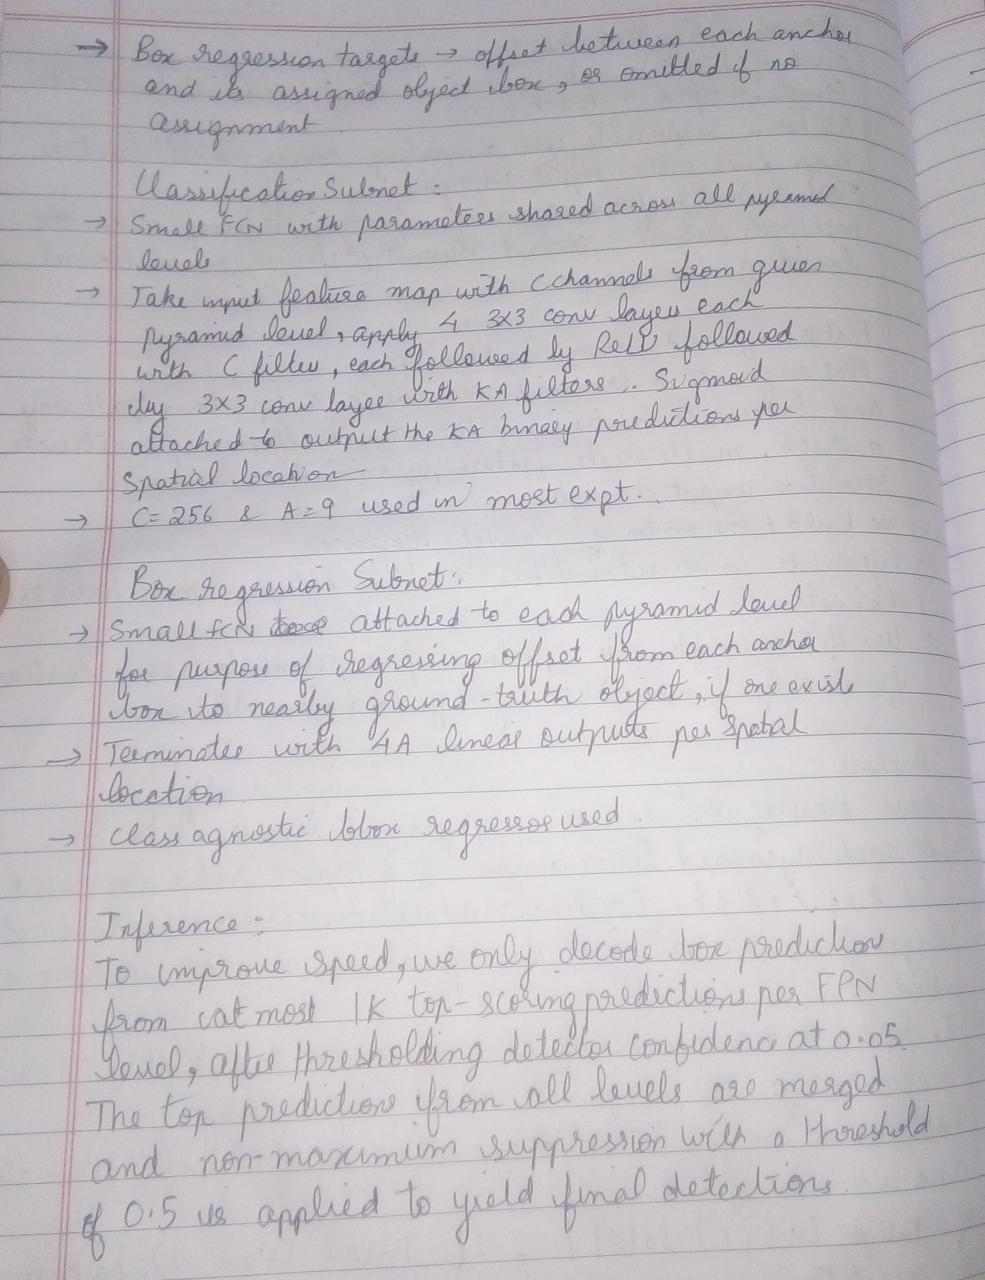 → Box regression targets → offset between each anchor
and its assigned object box, or omitted if no
assignment.
Classification Subnet :
→ Small FCN with parameters shared across all pyramid
levels
→ Take input feature map with C channels from given
pyramid level, apply 4 3x3 conv layers each
with C filters, each followed by ReLU followed
by 3x3 conv layer with KA filters. Sigmoid
attached to output the KA binary predictions per
spatial location
→ C=256 & A=9 used in most expt.
Box regression Subnet :
→ Small FCN attached to each pyramid level
for purpose of regressing offset from each anchor
box to nearby ground-truth object, if one exist
→ Terminates with 4A linear outputs per spatial
location
→ Class agnostic bbox regressor used.
Inference :
To improve speed, we only decode box prediction
from at most 1K top-scoring predictions per FPN
level, after thresholding detector confidence at 0.05.
The top predictions from all levels are merged
and non-maximum suppression with a threshold
of 0.5 is applied to yield final detections.